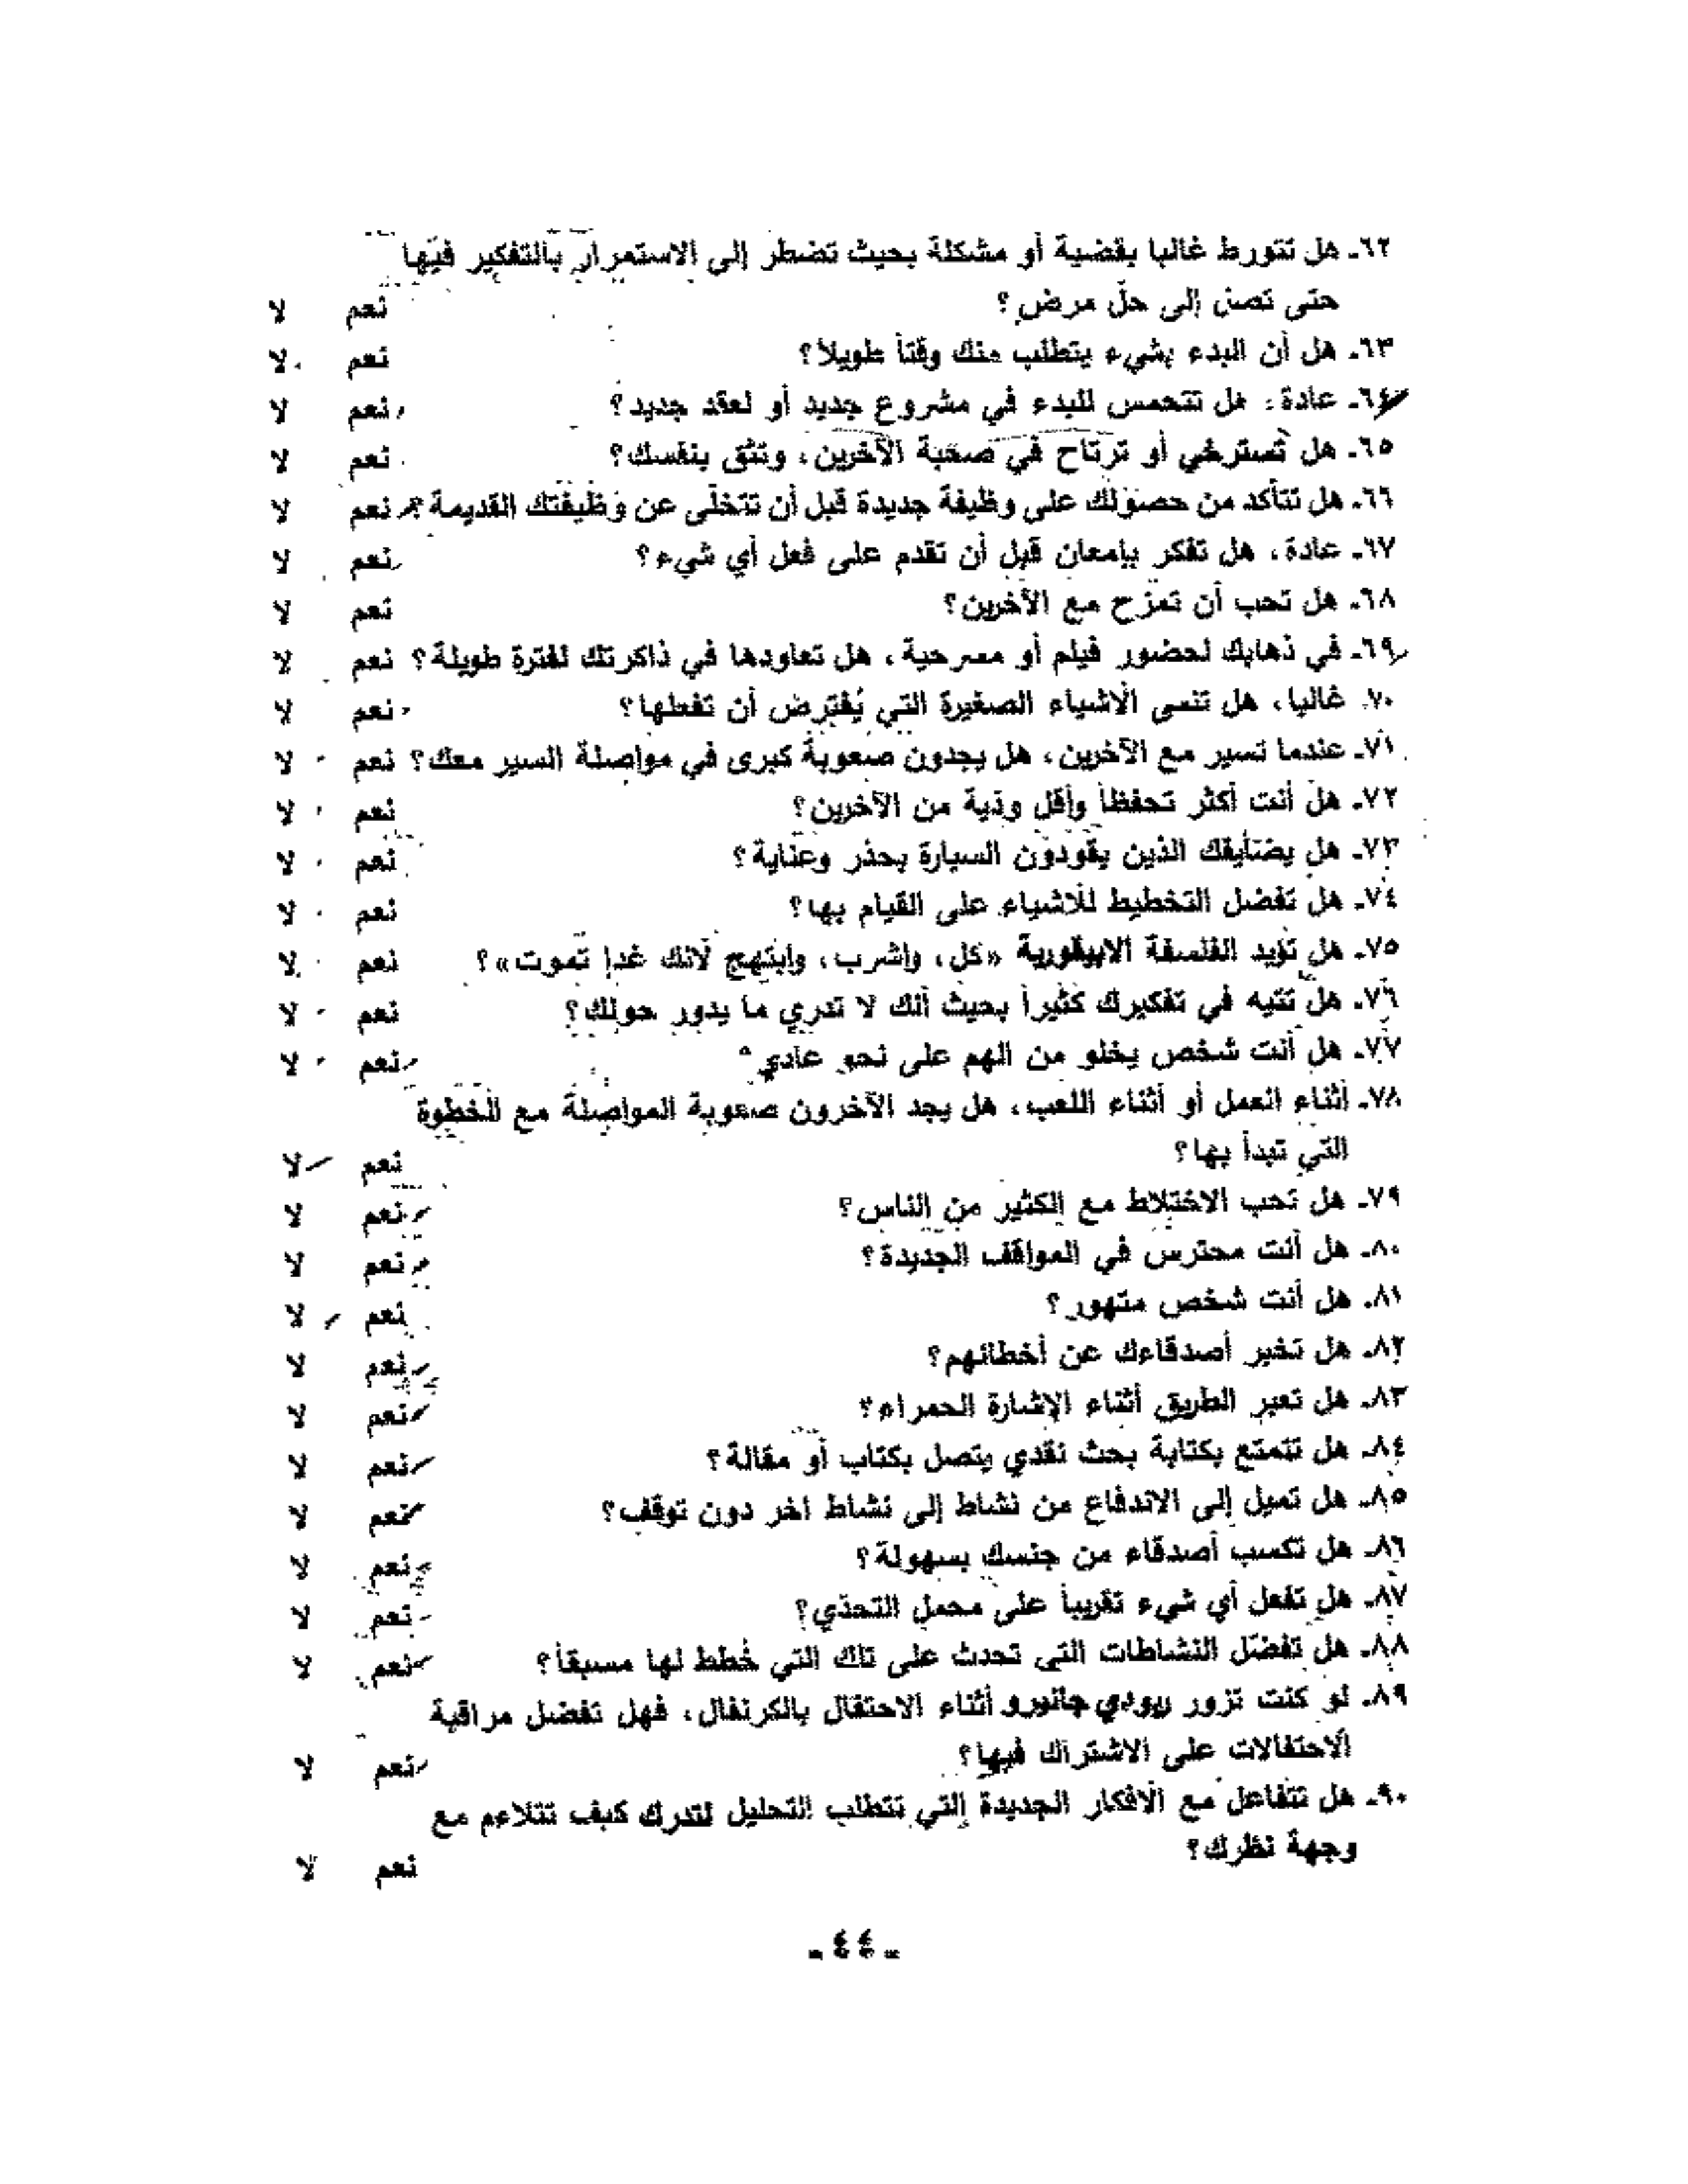 ٦٢ـ هل تتورط غالبا بقضية أو مشكلة بحيث تضطر إلى الاستمرار بالتفكير فيها
حتى تصل إلى حلّ مرض؟
نعم لا
٦٣ـ هل أن البدء بشيء يتطلب منك وقتاً طويلاً؟ نعم لا
٦٤ـ عادة، هل تتحمس للبدء في مشروع جديد أو لعقد جديد؟ نعم لا
٦٥ـ هل تسترخي أو ترتاح في صحبة الآخرين، وتثق بنفسك؟ نعم لا
٦٦ـ هل تتأكد من حصولك على وظيفة جديدة قبل أن تتخلّى عن وظيفتك القديمة؟ نعم لا
٦٧ـ عادة، هل تفكر بإمعان قبل أن تقدم على فعل أي شيء؟ نعم لا
٦٨ـ هل تحب أن تمزح مع الآخرين؟ نعم لا
٦٩ـ في ذهابك لحضور فيلم أو مسرحية، هل تعاودها في ذاكرتك لفترة طويلة؟ نعم لا
٧٠ـ غالبا، هل تنسى الأشياء الصغيرة التي يُفترض أن تفعلها؟ نعم لا
٧١ـ عندما تسير مع الآخرين، هل يجدون صعوبة كبرى في مواصلة السير معك؟ نعم لا
٧٢ـ هل أنت أكثر تحفظاً وأقل ودية من الآخرين؟ نعم لا
٧٣ـ هل يضايقك الذين يقودون السيارة بحذر وعناية؟ نعم لا
٧٤ـ هل تفضل التخطيط للأشياء على القيام بها؟ نعم لا
٧٥ـ هل تؤيد الفلسفة الابيقورية «كل، واشرب، وابتهج لأنك غدا تموت»؟ نعم لا
٧٦ـ هل تتيه في تفكيرك كثيراً بحيث أنك لا تدري ما يدور حولك؟ نعم لا
٧٧ـ هل أنت شخص يخلو من الهم على نحو عادي؟ نعم لا
٧٨ـ أثناء العمل أو أثناء اللعب، هل يجد الآخرون صعوبة المواصلة مع الخطوة
التي تبدأ بها؟ نعم لا
٧٩ـ هل تحب الاختلاط مع الكثير من الناس؟ نعم لا
٨٠ـ هل أنت محترس في المواقف الجديدة؟ نعم لا
٨١ـ هل أنت شخص متهور؟ نعم لا
٨٢ـ هل تخبر أصدقاءك عن أخطائهم؟ نعم لا
٨٣ـ هل تعبر الطريق أثناء الإشارة الحمراء؟ نعم لا
٨٤ـ هل تتمتع بكتابة بحث نقدي يتصل بكتاب أو مقالة؟ نعم لا
٨٥ـ هل تميل إلى الاندفاع من نشاط إلى نشاط اخر دون توقف؟ نعم لا
٨٦ـ هل تكسب أصدقاء من جنسك بسهولة؟ نعم لا
٨٧ـ هل تفعل أي شيء تقريباً على محمل التحدّي؟ نعم لا
٨٨ـ هل تفضّل النشاطات التي تحدث على تلك التي خُطط لها مسبقاً؟ نعم لا
٨٩ـ لو كنت تزور ريودي جانيرو أثناء الاحتفال بالكرنفال، فهل تفضل مراقبة
الاحتفالات على الاشتراك فيها؟ نعم لا
٩٠ـ هل تتفاعل مع الأفكار الجديدة التي تتطلب التحليل لتدرك كيف تتلاءم مع
وجهة نظرك؟
نعم لا
ـ ٤٤ ـ